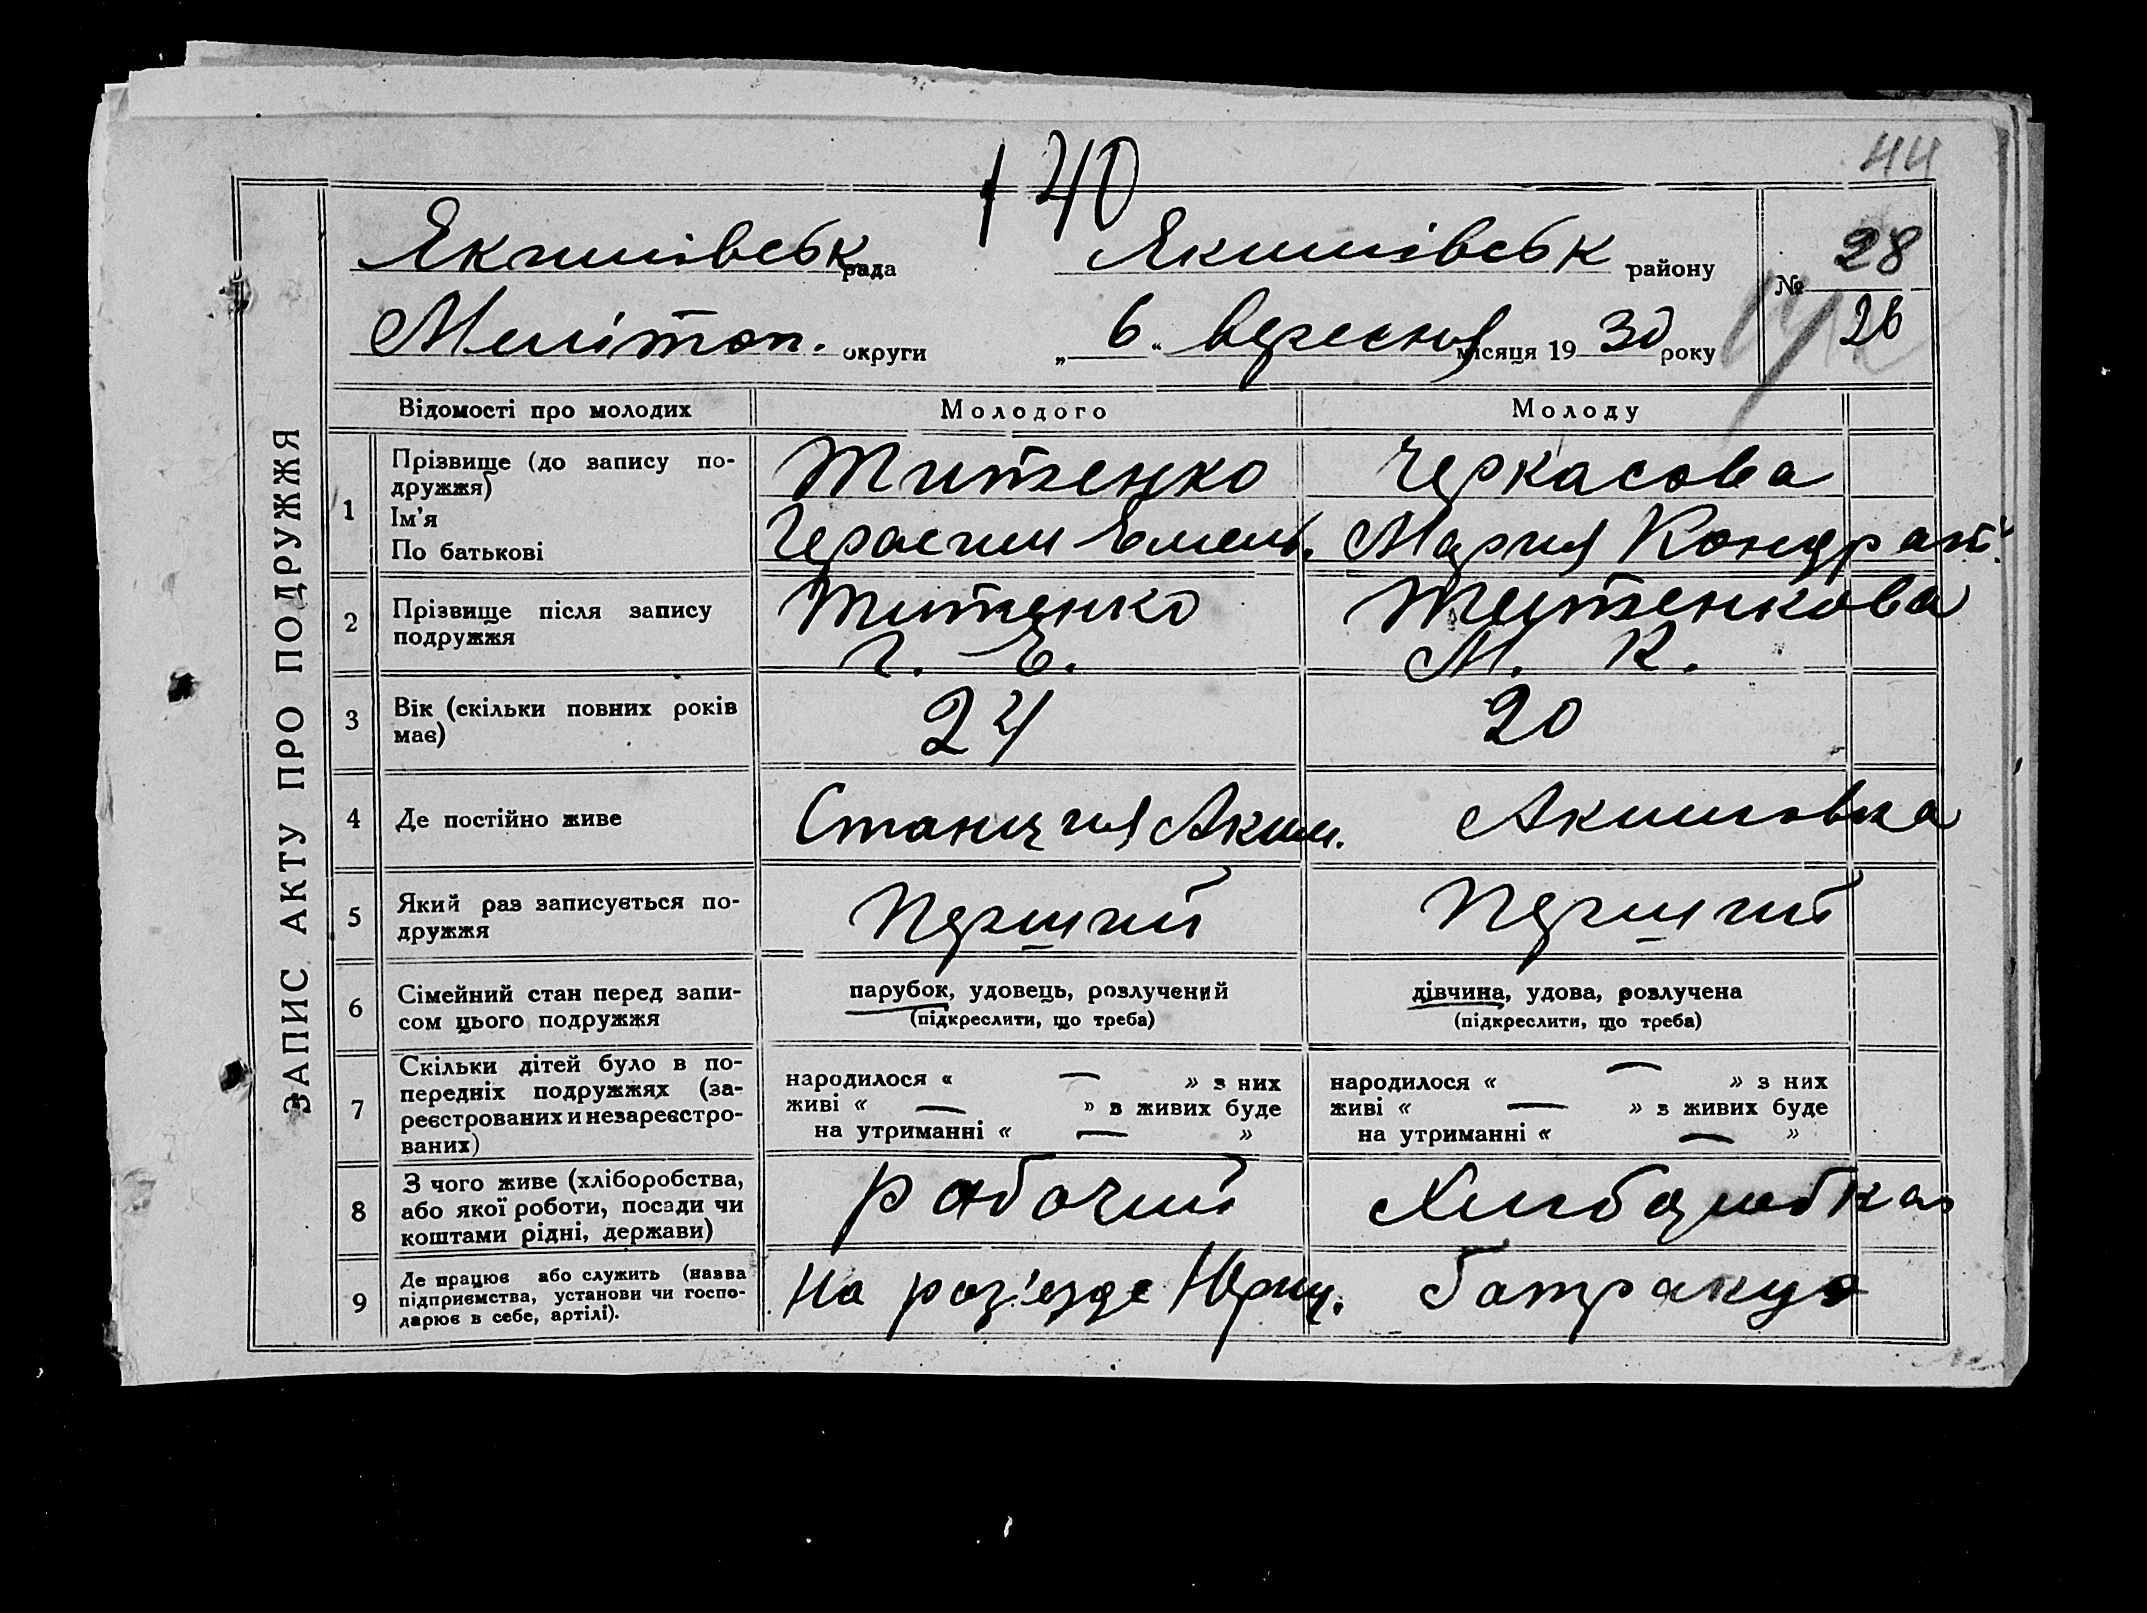 140
44
Якимівськ рада Якимівськ району
№ 28
26
Меліітоп. округи „ 6 " вересня місяця 19 30 року
ЗАПИС АКТУ ПРО ПОДРУЖЖЯ
Відомості про молодих Молодого Молоду
1 Прізвище (до запису по-
дружжя)
Ім'я
По батькові
Титенко
Герасим Емель.
Черкасова
Мария Кондрат.
2 Прізвище після запису
подружжя
Титенко
Г. Е.
Титенкова
М. К.
3 Вік (скільки повних років
має)
24
20
4 Де постійно живе
Станция Аким.
Акимовка
5 Який раз записується по-
дружжя
Перший
Перший
6 Сімейний стан перед запи-
сом цього подружжя
парубок, удовець, розлучений
(підкреслити, що треба)
дівчина, удова, розлучена
(підкреслити, що треба)
7 Скільки дітей було в по-
передніх подружжях (за-
реєстрованих и незареєстро-
ваних)
народилося « — » з них
живі « — » з живих буде
на утриманні « — »
народилося « — » з них
живі « — » з живих буде
на утриманні « — »
8 З чого живе (хліборобства,
або якої роботи, посади чи
коштами рідні, держави)
рабочий
9 Де працює або служить (назва
підприємства, установи чи госпо-
дарює в себе, артілі).
На роз'езде